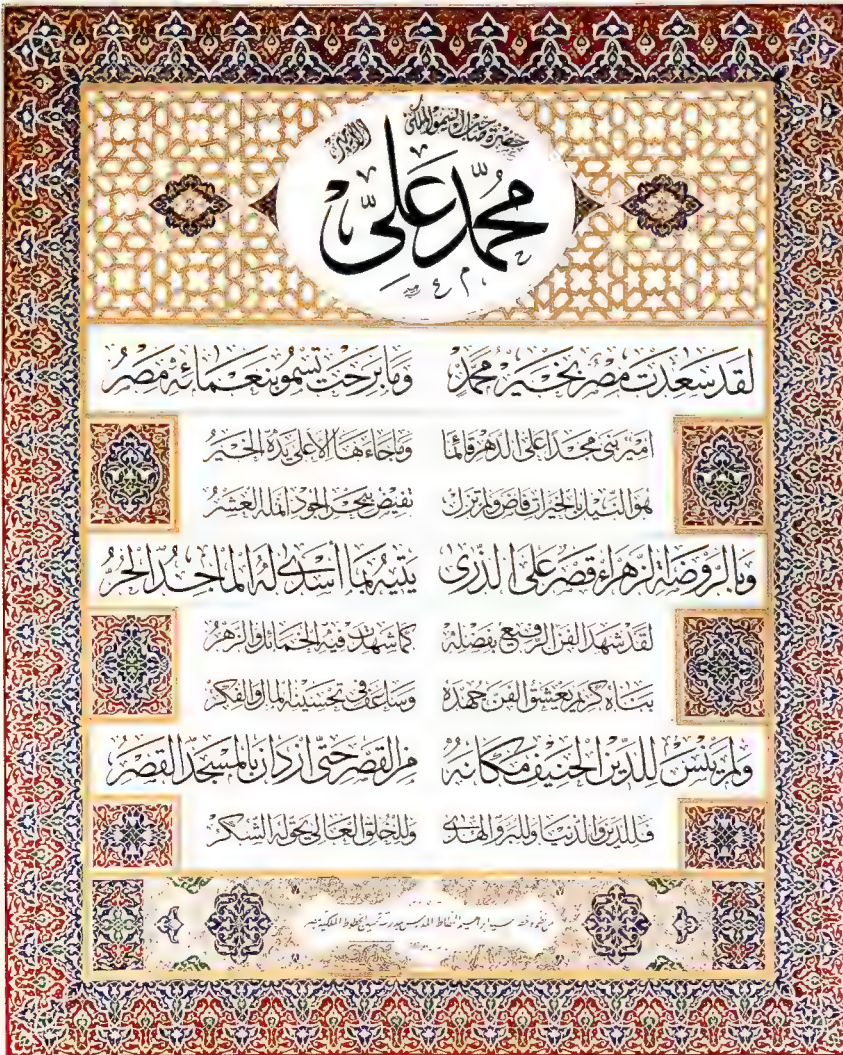 حضرة صاحب السمو الملكى الأمير
محمد علي
لقد سعدت مصر بخير محمد وما برحت تسمو بنعمائه مصر
امير بنى مجدا على الدهر قائما وما جاء هذا الا على يده الخير
هو النيل بالخيرات فاض ولم تزل تفيض ببحر الجود انمله العشر
وبالروضة الزهراء قصر على الذرى يتيه بما أسدى له الماجد الحر
لقد شهد الفن الرفيع بفضله كما شهدت فيه الخمائل والزهر
بناه كريم يعشق الفن جهده وساعف فى تحسينه المال والفكر
ولم ينس للدين الحنيف مكانه من القصر حتى ازدان بالمسجد القصر
فللدين والدنيا وللبر والهدى وللخلق العالى يحق له الشكر
سيد ابراهيم الخطاط المدرس بمدرسة تحسين الخطوط الملكية